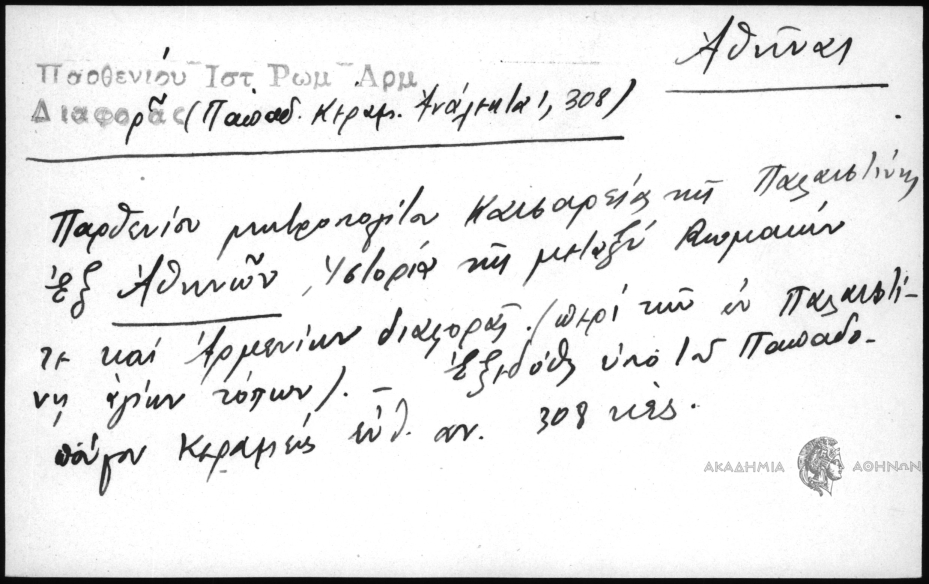 Ἀθῆναι
Παρθενίου Ἱστ Ρωμ Ἀρμ
Διαφορᾶς (Παπαδ. Κεραμ. Ἀνάλεκτα Ι, 308)
Παρθενίου μητροπολίτου Καισαρείας τῆς Παλαιστίνης
ἐξ Ἀθηνῶν, Ἱστορία τῆς μεταξὺ Ρωμαίων
τε καὶ Ἀρμενίων διαφορᾶς. (περὶ τῶν ἐν Παλαιστί-
νῃ ἁγίων τόπων). – Ἐξεδόθη ὑπὸ τοῦ Παπαδο-
πούλου Κεραμέως ἐνθ. αν. 308 κἑξ.
ΑΚΑΔΗΜΙΑ ΑΘΗΝΩΝ